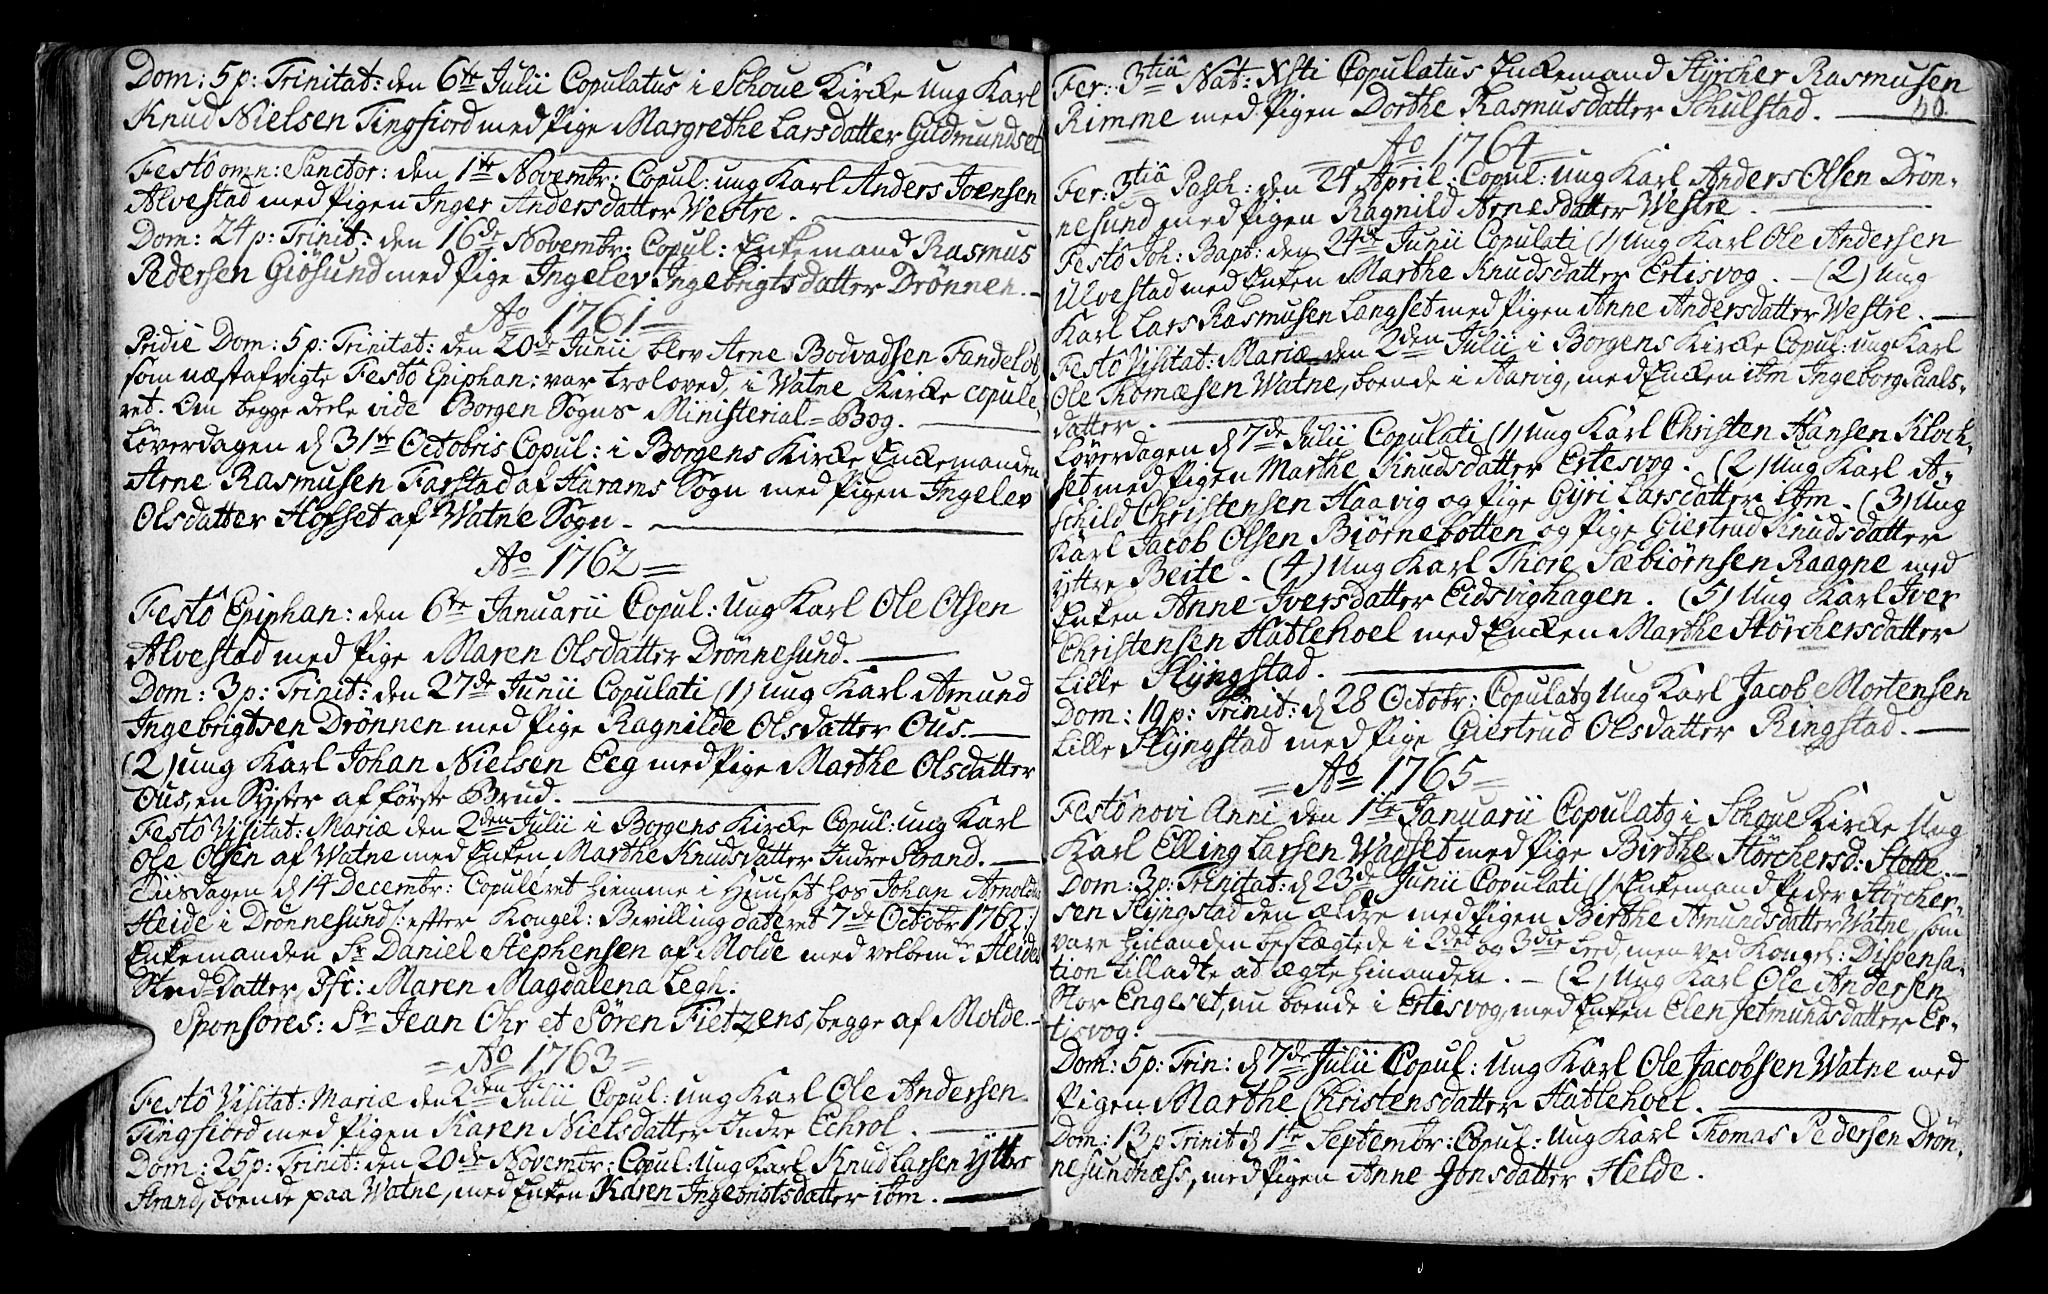 Dom: 5 p: Trinitat: den 6te Julii Copulatus i Schoue Kirke ung Karl
Knud Nielsen Tingfiord med Pige Margrethe Larsdatter Gudmundset
Festô omn: Sanctor: den 1te Novembr: Copul: ung Karl Anders Joensen
Alvestad med Pigen Inger Andersdatter Westre.
Dom: 24 p: Trinit: den 16de Novembr: Copul: Enkemand Rasmus
Pedersen Giøsund med Pige Ingelev Ingebrigtsdatter Drønnen.
Ao 1761
Pridie Dom: 5 p: Trinitat: den 20de Junii blev Arne Bodvadsen
som næstafvigte Festô Epiphan: var troloved, i Watne Kirke copule-
ret. Om begge deele vide Borgen Sogns Ministerial=Bog.
Løverdagen d 31te Octobris Copul: i Borgens Kirke Enckemanden
Arne Rasmusen Farstad af Harams Sogn med Pigen Ingelev
Olsdatter Hofset af Watne Sogn.
Ao 1762
Festô Epiphan: den 6te Januarii Copul: Ung Karl Ole Olsen
Alvestad med Pige Maren Olsdatter Drönnesund.
Dom: 3 p: Trinit: den 27de Junii Copulati (1) ung Karl Amund
Ingebrigtsen Drönnen med Pige Ragnilde Olsdatter Ous.
(2) ung Karl Johan Nielsen Eeg med Pige Marthe Olsdatter
Ous, en Syster af første Brud.
Festô Visitat: Mariæ den 2den Julii i Borgens Kirke Copul: ung Karl
Ole Olsen af Watne med Enken Marthe Knudsdatter Indre Strand.
Tiisdagen d 14 Decembr: Copuleret hiemme i Huuset hos Johan
Heide i Drönnesund /: efter Kongel: Bevilling dateret 7de Octobr 1762:/
Enkemanden Sr Daniel Stephensen af Molde med velbemte Heides
Sted=Datter Jfr: Maren Magdalena Legh.
Sponsores: Sr Jean Ohr et Sören Fietzens, begge af Molde.
Ao 1763
Festô Visitat: Mariæ den 2den Julii Copul: ung Karl Ole Andersen
Tingfiord med Pigen Karen Nielsdatter Indre Echrol.
Dom: 25 p: Trinit: den 20de Novembr: Copul: Ung Karl Knud Larsen Ÿttre
Strand, boende paa Watne, med Enken Karen Ingebrigtsdatter ibm.
Fer: 3tiâ Nat: Xsti Copulatus Enckemand Styrcher Rasmusen
Rimme med Pigen Dorthe Rasmusdatter Schulstad.
Ao 1764
Fer: 3tiâ Pasch: den 24 April: Copul: ung Karl Anders Olsen Drön-
nesund med Pigen Ragnild Arnesdatter Westre.
Festô Joh: Bapt: den 24de Junii Copulati (1) ung Karl Ole Andersen
Ulvestad med Enken Marthe Knudsdatter Ertisvog. - (2) Ung
Karl Lars Rasmusen Langset med Pigen Anne Andersdatter Westre.
Festô Visitat: Mariæ den 2den Julii i Borgens Kirke Copul: ung Karl
Ole Thomæsen Watne, boende i Aarvig, med Encken ibm Ingeborg Paals-
datter.
Løverdagen d 7de Julii Copulati (1) ung Karl Christen Hansen Klock-
set med Pigen Marthe Knudsdatter Ertesvog. (2) Ung Karl A-
schild Christensen Haavig og Pige Gÿri Larsdatter ibm. (3) Ung
Karl Jacob Olsen Biørnebotten og Pige Giertrud Knudsdatter
ÿttre Beite. (4) Ung Karl Thore Sæbiörnsen Raagne med
Enken Anne Iversdatter Eidsvighagen. (5) Ung Karl Iver
Christensen Hatlehoel med Encken Marthe Störchersdatter
Lille Slÿngstad.
Dom: 19 p: Trinit: d 28 Octobr: Copulatq Ung Karl Jacob Mortensen
Lille Slÿngstad med Pige Giertrud Olsdatter Ringstad.
Ao 1765
Festô novi Anni den 1te Januarii Copulatq i Schoue Kirke Ung
Karl Elling Larsen Wadset med Pige Birthe Störchersd: Slotte.
Dom: 3 p: Trinitat: d 23de Junii Copulati (1) Enkemand Peder Störcher-
sen Slÿngstad den ældre med Pigen Birthe Amundsdatter Watne, som
vare hinanden beslægtede i 2det og 3die Leed, men ved Kongel: Dispensa-
tion tilladte at ægte hinanden. - (2) Ung Karl Ole Andersen
Stor Engeset, nu boende i Ertisvog, med Enken Elen Jetmundsdatter Er-
tisvog:
Dom: 5 p: Trin: d 7de Julii Copul: Ung Karl Ole Jacobsen Watne med
Pigen Marthe Christensdatter Hatlehoel.
Dom: 13 p Trinit d 1te Septembr: Copul: Ung Karl Thomas Pedersen Drön-
nesundnæss, med Pigen Anne Jonsdatter Helde.